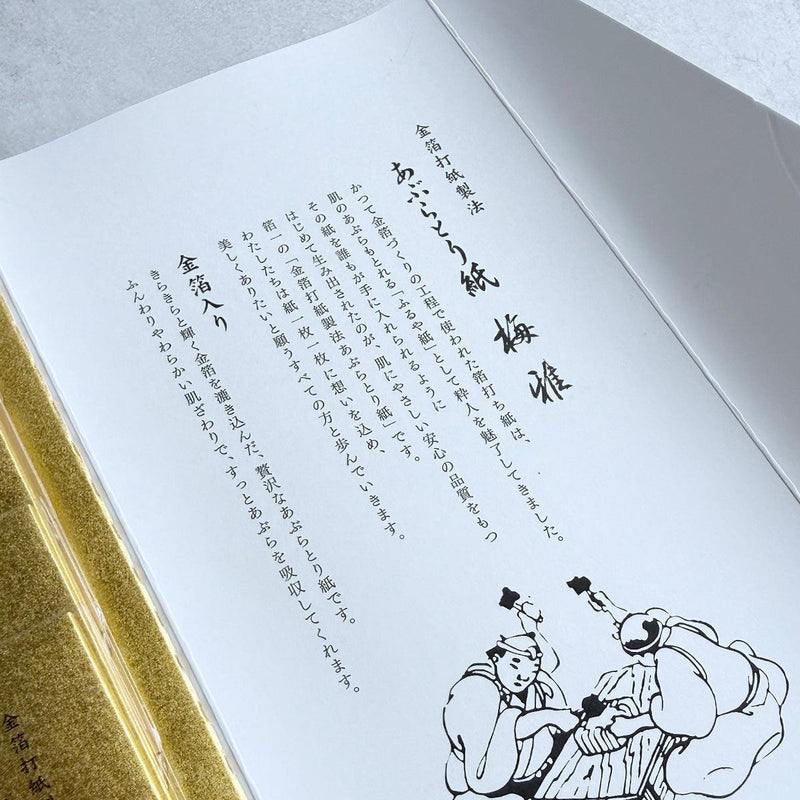 金箔打紙製法
あぶらとり紙 梅雅
かつて金箔づくりの工程で使われた箔打ち紙は、
肌のあぶらもとれる「ふるや紙」として粋人を魅了してきました。
その紙を誰もが手に入れられるように
はじめて生み出されたのが、肌にやさしい安心の品質をもつ
箔一の「金箔打紙製法あぶらとり紙」です。
わたしたちは紙一枚一枚に想いを込め、
美しくありたいと願うすべての方と歩んでいきます。
金箔入り
きらきらと輝く金箔を漉き込んだ、贅沢なあぶらとり紙です。
ふんわりやわらかい肌ざわりで、すっとあぶらを吸収してくれます。
金箔打紙製